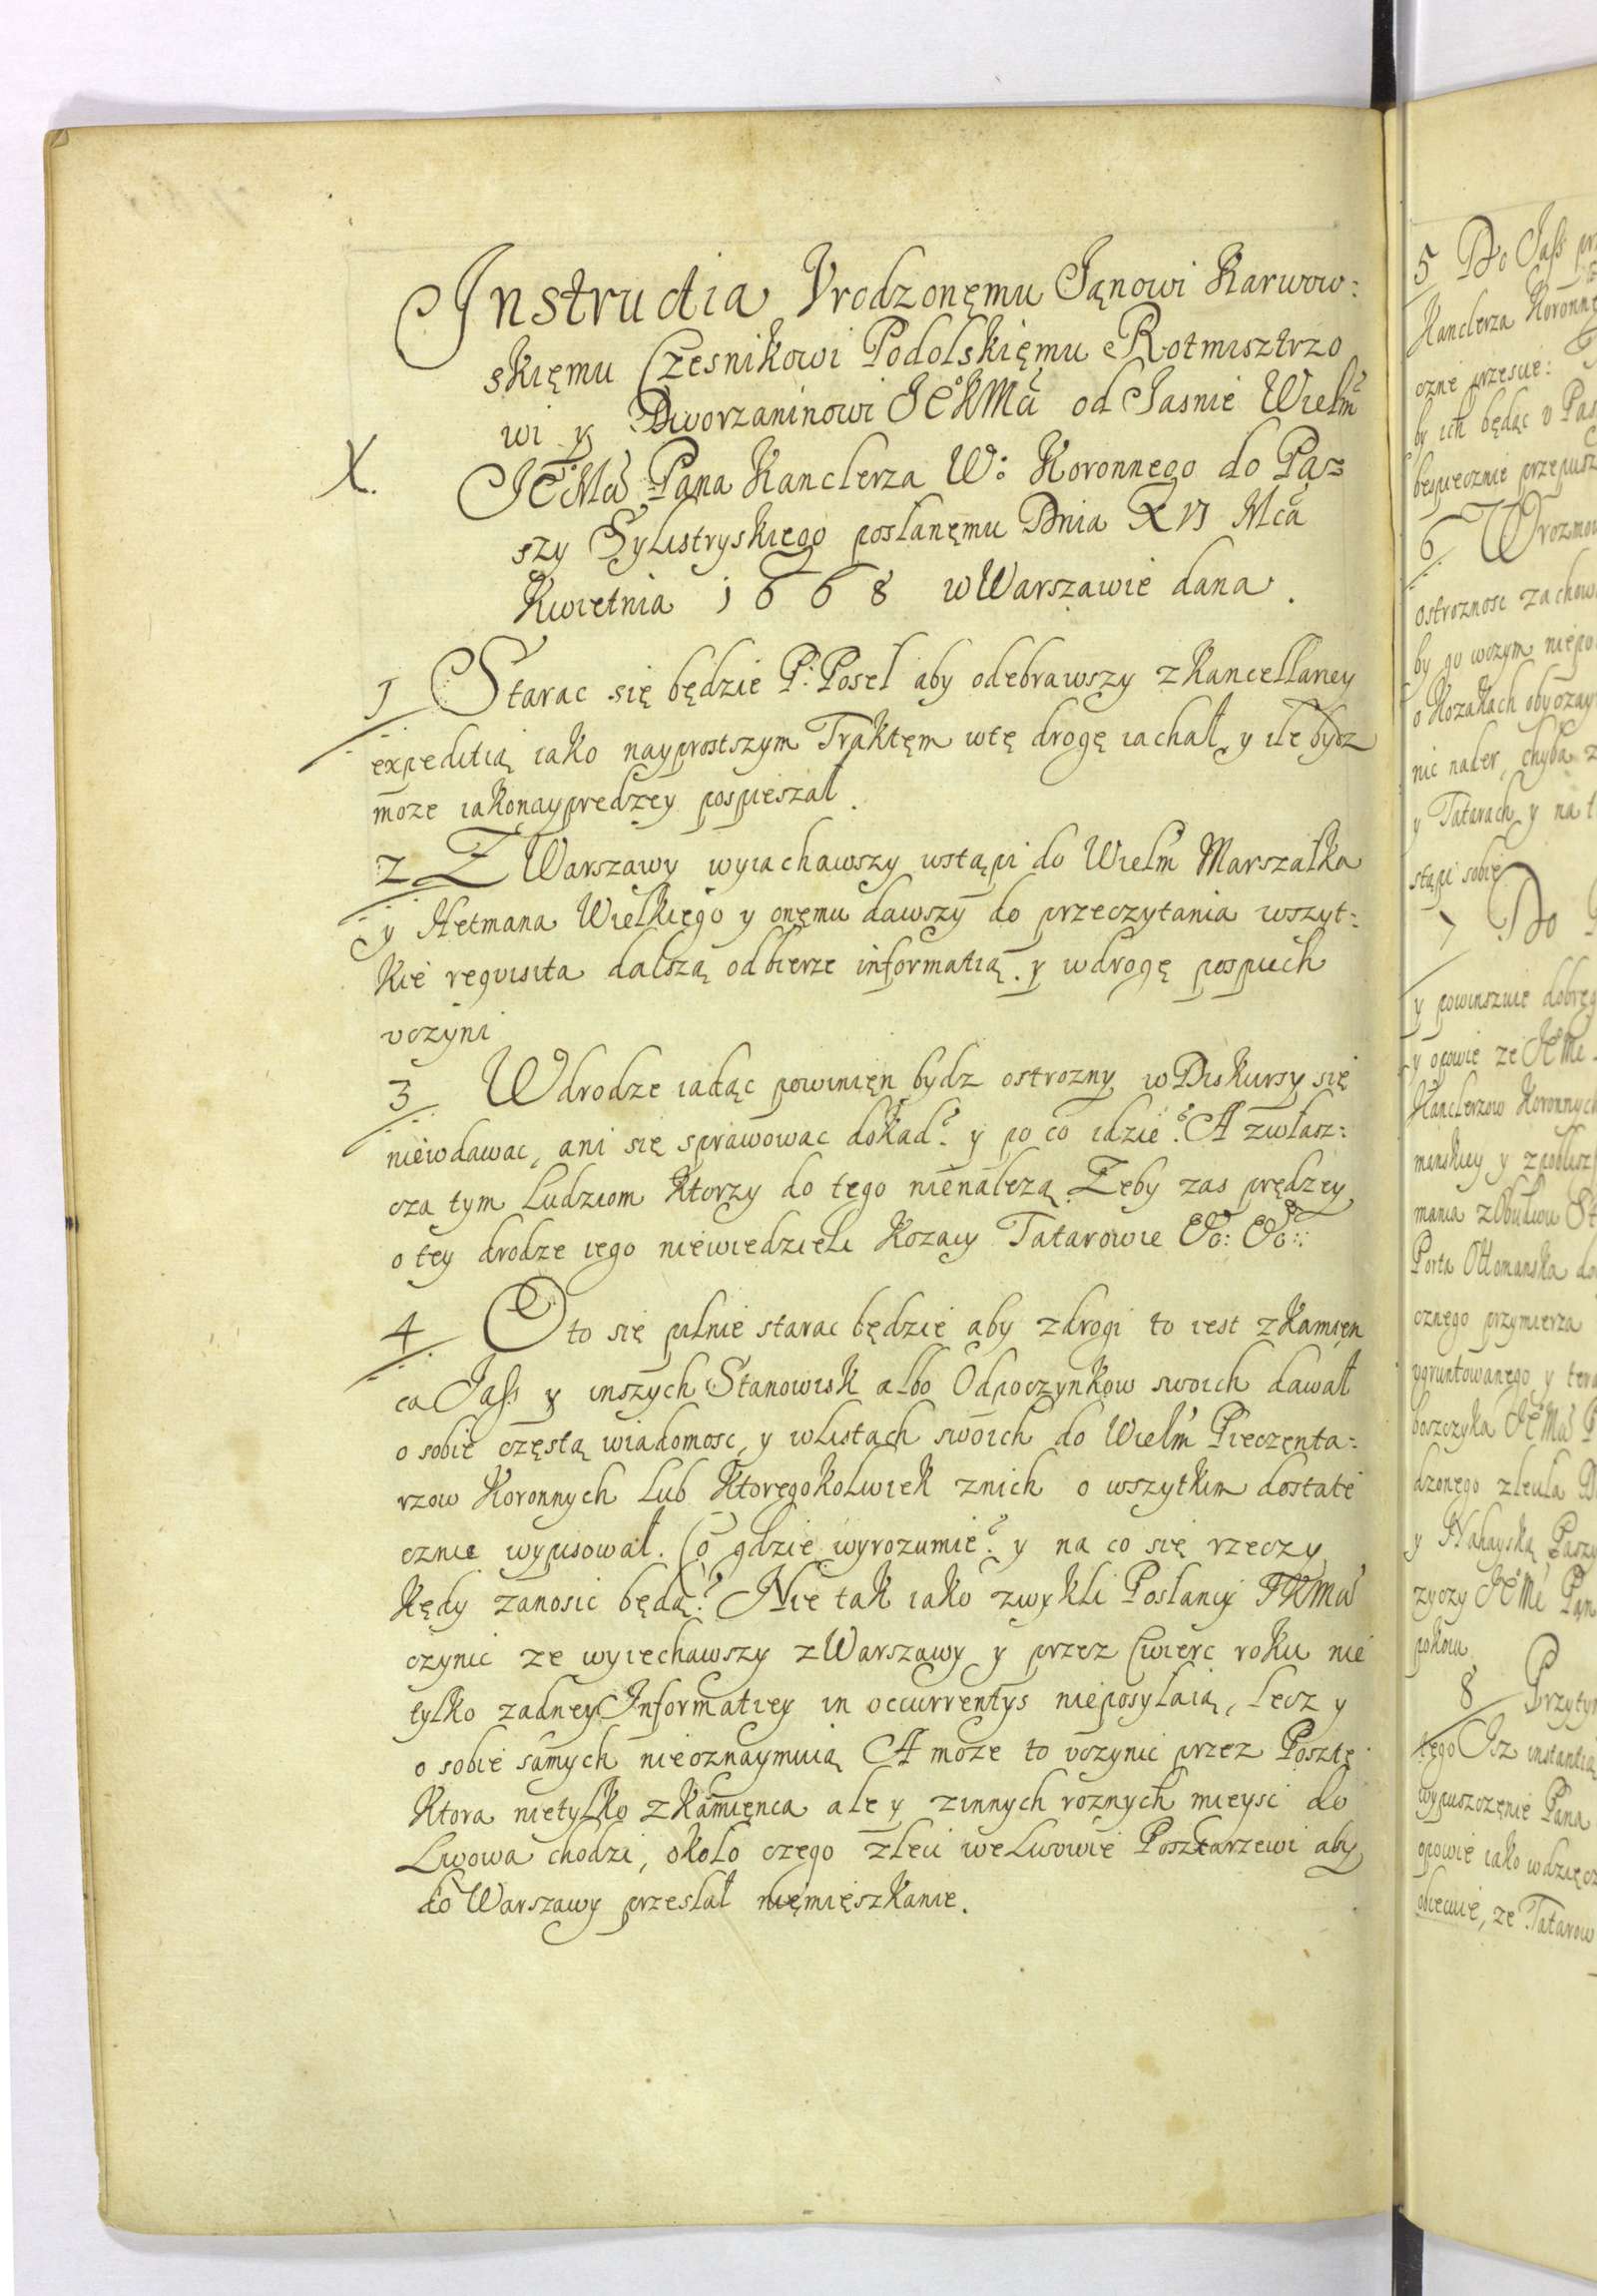 Instructia Vrodzonęmu Janowi Karwow:
skięmu Czesnikowi Podolskięmu Rotmisztrzo
wi y Dworzaninowi JEKMci od Jasnie Wielm
X.
JEMci Pana Kanclerza W: Koronnego do Pa=
szy Sylistryskiego posłanęmu Dnia XVI Mca
Kwietnia 1668 w Warszawie dana.
1 Starac się będzie P: Poseł aby odebrawszy z Kancellariey
expeditią iako nayprostszym Traktęm wtę drogę iachał y ile bydz
moze iakonayprędzey pospieszał.
2 Z Warszawy wyiachawszy wstąpi do Wielm Marszałka
y Hetmana Wielkięgo y onęmu dawszy do przeczytania wszyt:
kie requisita dalszą odbierze informatią. y wdrogę pospiech
vczyni
3 W drodze iadąc powinięn bydz ostrozny w Diskursy się
niewdawac, ani się sprawowac dokąd? y po co idzie? A zwłasz:
cza tym Ludziom ktorzy do tego nienalezą. Zeby zas prędzey
o tey drodze iego niewiedzieli Kozacy Tatarowie &c: &c:
4 O to się pilnie starac będzie aby z drogi to iest z Kamięn
ca Jass y inszych Stanowisk albo Odpoczynkow swoich dawał
o sobie częstą wiadomosc, y wListach swoich do Wielm Pieczęnta:
rzow Koronnych Lub ktoregokolwiek znich o wszytkim dostate
cznie wypisował. Co gdzie wyrozumie? y na co się rzeczy
kędy zanosic będą? Nie tak iako zwykli Posłancy JKMci
czynic ze wyiechawszy z Warszawy y przez Cwierc roku nie
tylko zadney Informatiey in occurrentys nieposyłaią, lecz y
o sobie samych nieoznaymuią A moze to vczynic przez Posztę
Ktora nietylko z Kamięnca ale y zinnych roznych mieysc do
Lwowa chodzi, około czego zleci we Lwowie Posztarzewi aby
do Warszawy przesłał niemięszkanie.
5 Do Jass
Kanclerza Koronne
by ich będąc v
6 W rozmow
ostroznosc zachow
o Kozakach obyczay
nic nader, chyba z
y Tatarach y na t
stąpi sobie
7 Do
y powinszuie dobręg
Kanclerzow Koronnych
Porta Ottomanska do
cznego przymierza
vgruntowanego y tera
pokoiu
8 Przyty
tęgo Jsz instantią
wypuszczęnie Pana
opowie iako wdzięcz
obiecuie, ze Tatarow